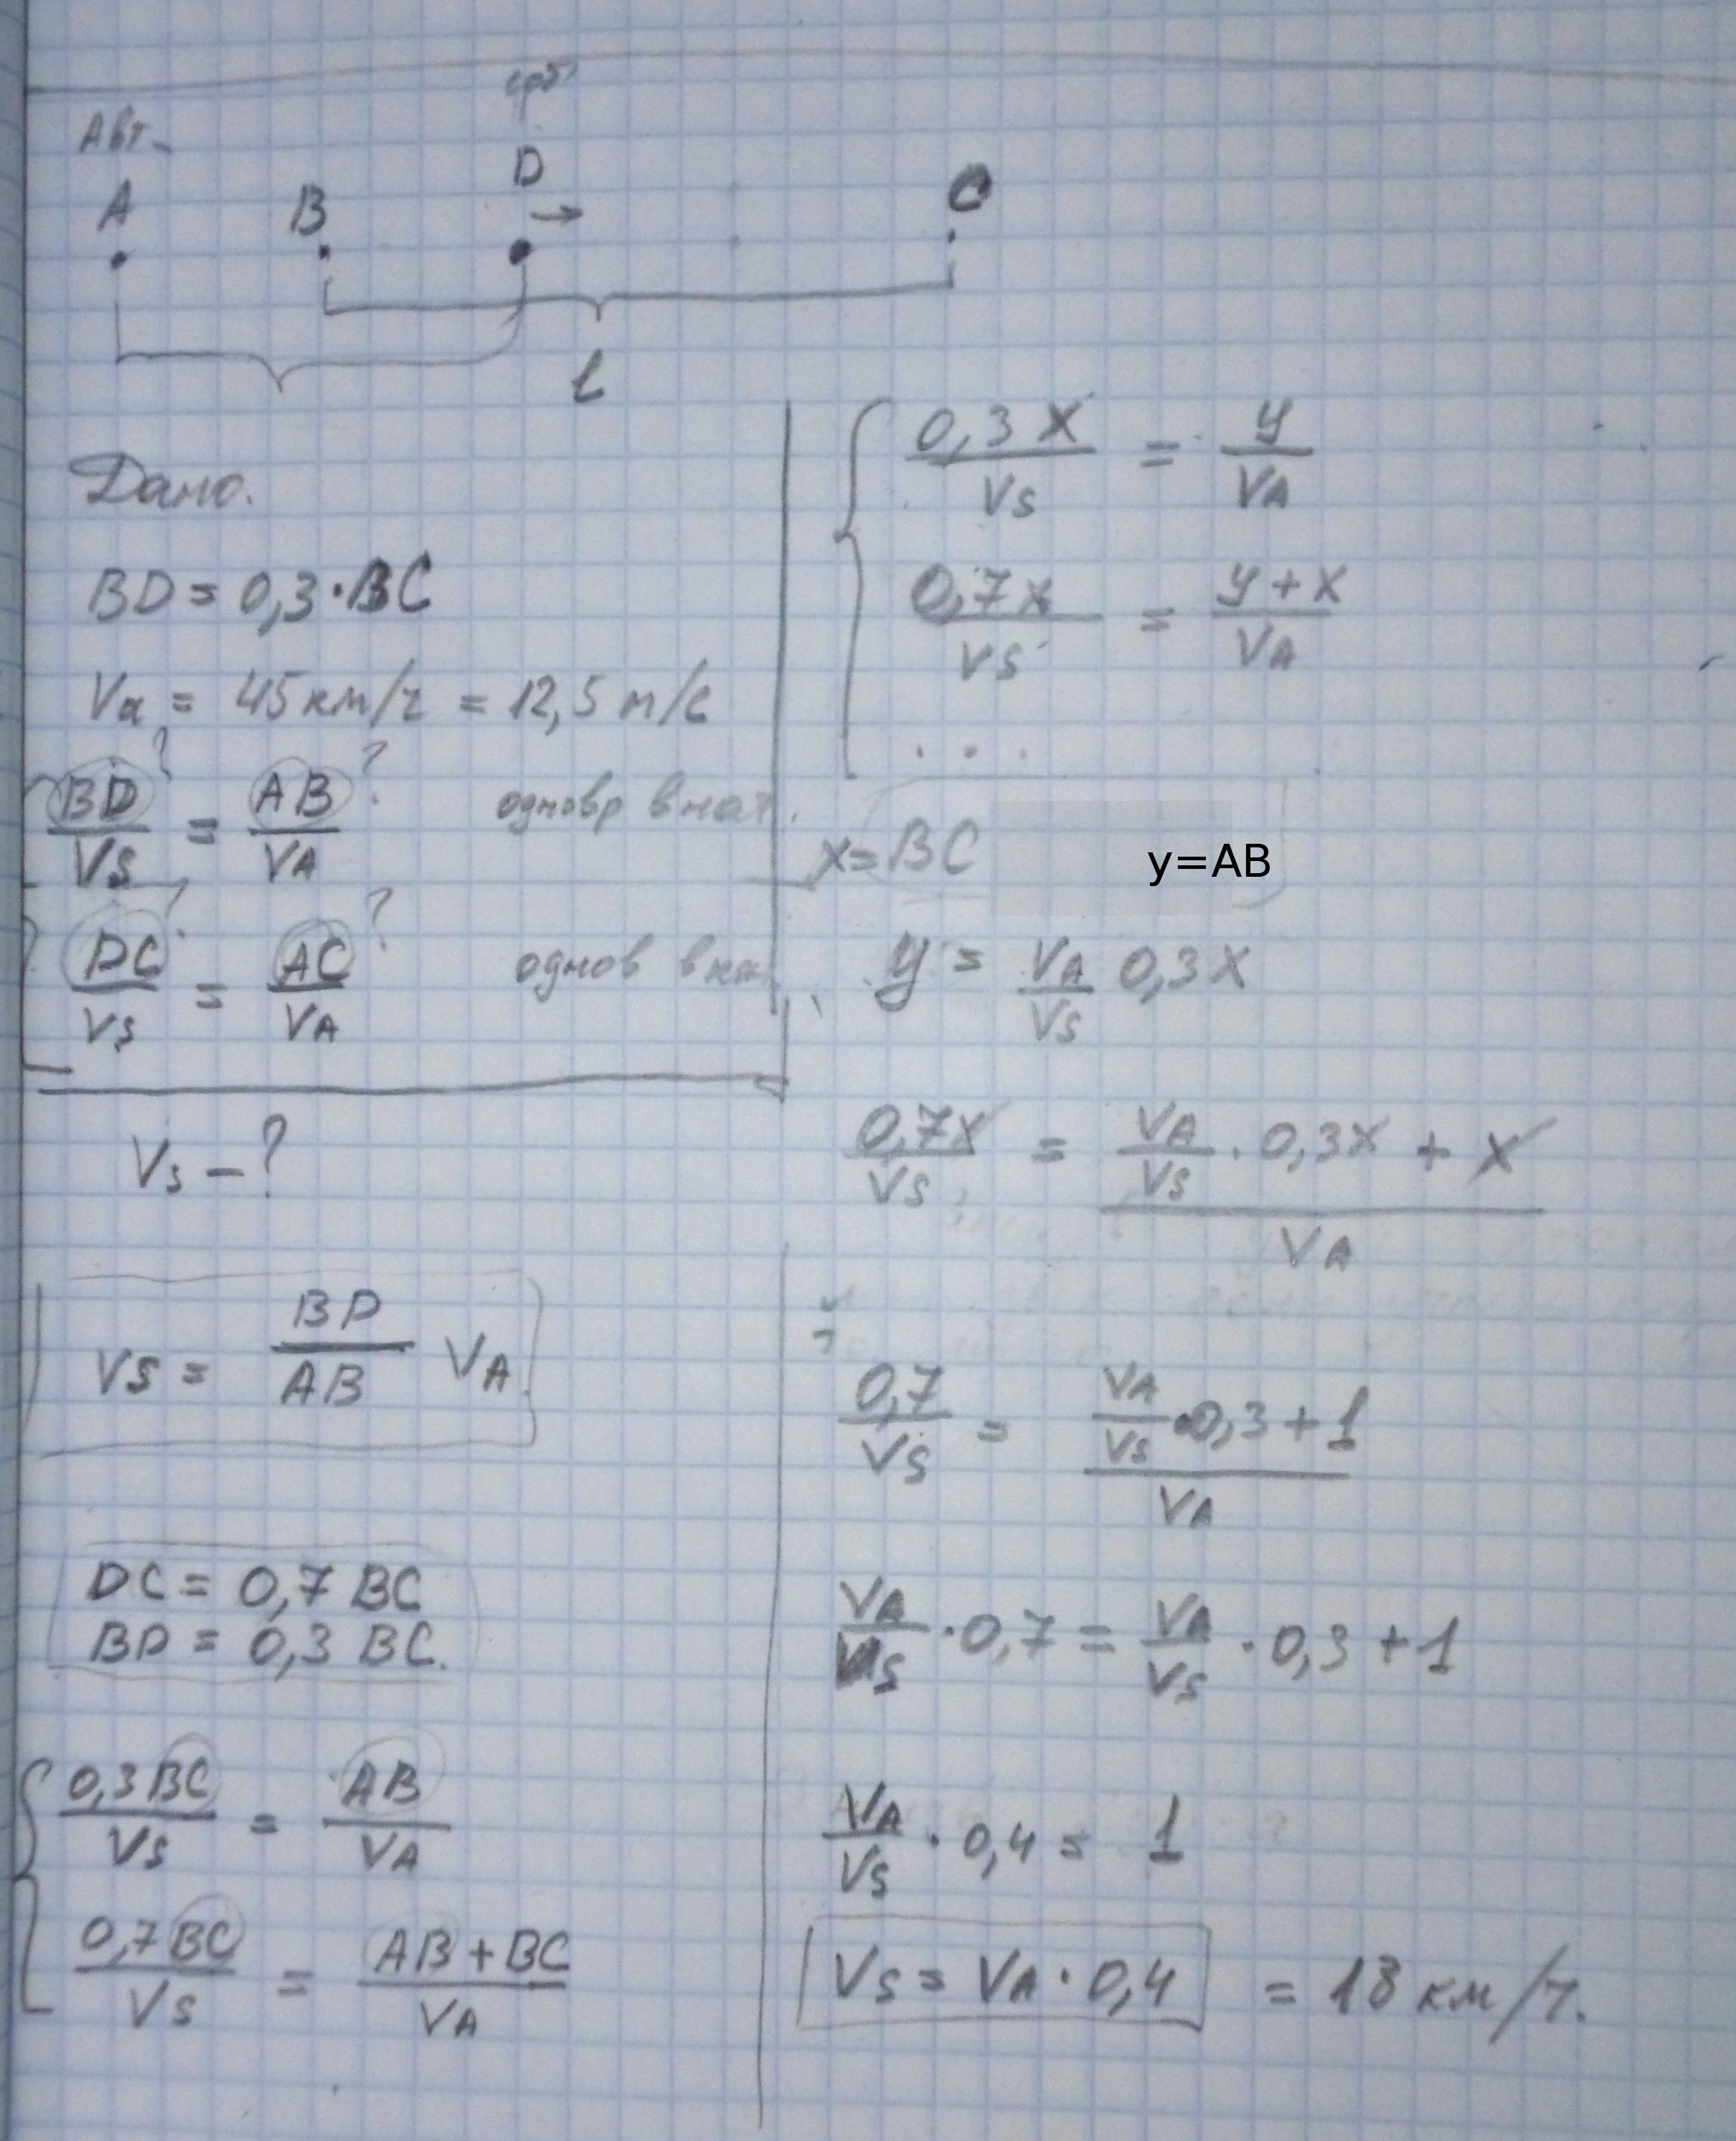 Авт.
D
A B C
l
Дано.
BD = 0,3·BC
Va = 45 км/ч = 12,5 м/с
BD/VS = AB/VA ? ?
DC/VS = AC/VA ? ?
Vs - ?
VS = BD/AB VA
DC = 0,7 BC
BD = 0,3 BC.
0,3 BC/VS = AB/VA
0,7 BC/VS = AB + BC/VA
0,3 X/VS = y/VA
0,7 x/VS = y + x/VA
. . .
x = BC y=AB
y = VA/VS 0,3 X
0,7X/VS = VA/VS · 0,3X + X/VA
0,7/VS = VA/VS · 0,3 + 1/VA
VA/VS · 0,7 = VA/VS · 0,3 + 1
VA/VS · 0,4 = 1
VS = VA · 0,4 = 18 км/ч.